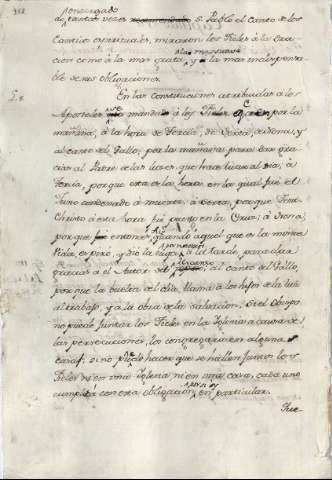 por
encargado
de tantas veces recomendado S. Pablo el canto de los
Canticos espirituales, miraron los Fieles à la Ora-
cion como à la mar grata, y à la mas indispensa-
ble de sus obligaciones.
En las constituciones atribuidas a los
Apostoles se manda à los Fieles Orar por la
mañana, à la hora de Tercia, de Sexta, de Nona, y
al canto del Gallo; por la mañana para dar gra-
cias al Padre de las luces, que hace lucir al dia; à
Tercia, porque esta es la hora en la qual fue el
Justo condenado à muerte; à Sexta, porque Jesu-
Christo à esta hora fue puesto en la Cruz; à Nona,
porque fue entonces quando aquel que es la misma
Vida, espiró, y dio la à la tarde, para dar
gracias à el Autor del descanso; al canto del Gallo,
porque la buelta del dia llama à los hijos de la luz
al trabajo, y a la obra de la salvacion. Si el Obispo
no puede juntar los Fieles en la Iglesia a causa de
las persecuciones, los congregará en alguna
casa; si no puede hacer que se hallen juntos los
Fieles ni en una Iglesia, ni en una casa, cada uno
cumplirá con esta obligacion en particular.